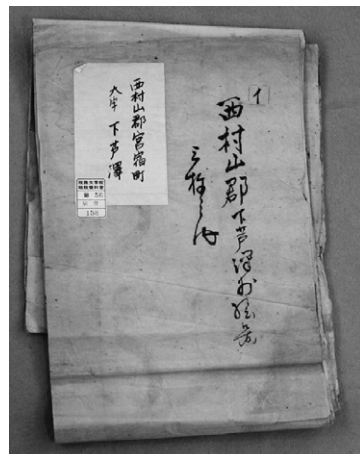 イ
西村山郡下芦澤村絵図
三枚之内
西村山郡宮宿町
大字 下芦澤
158